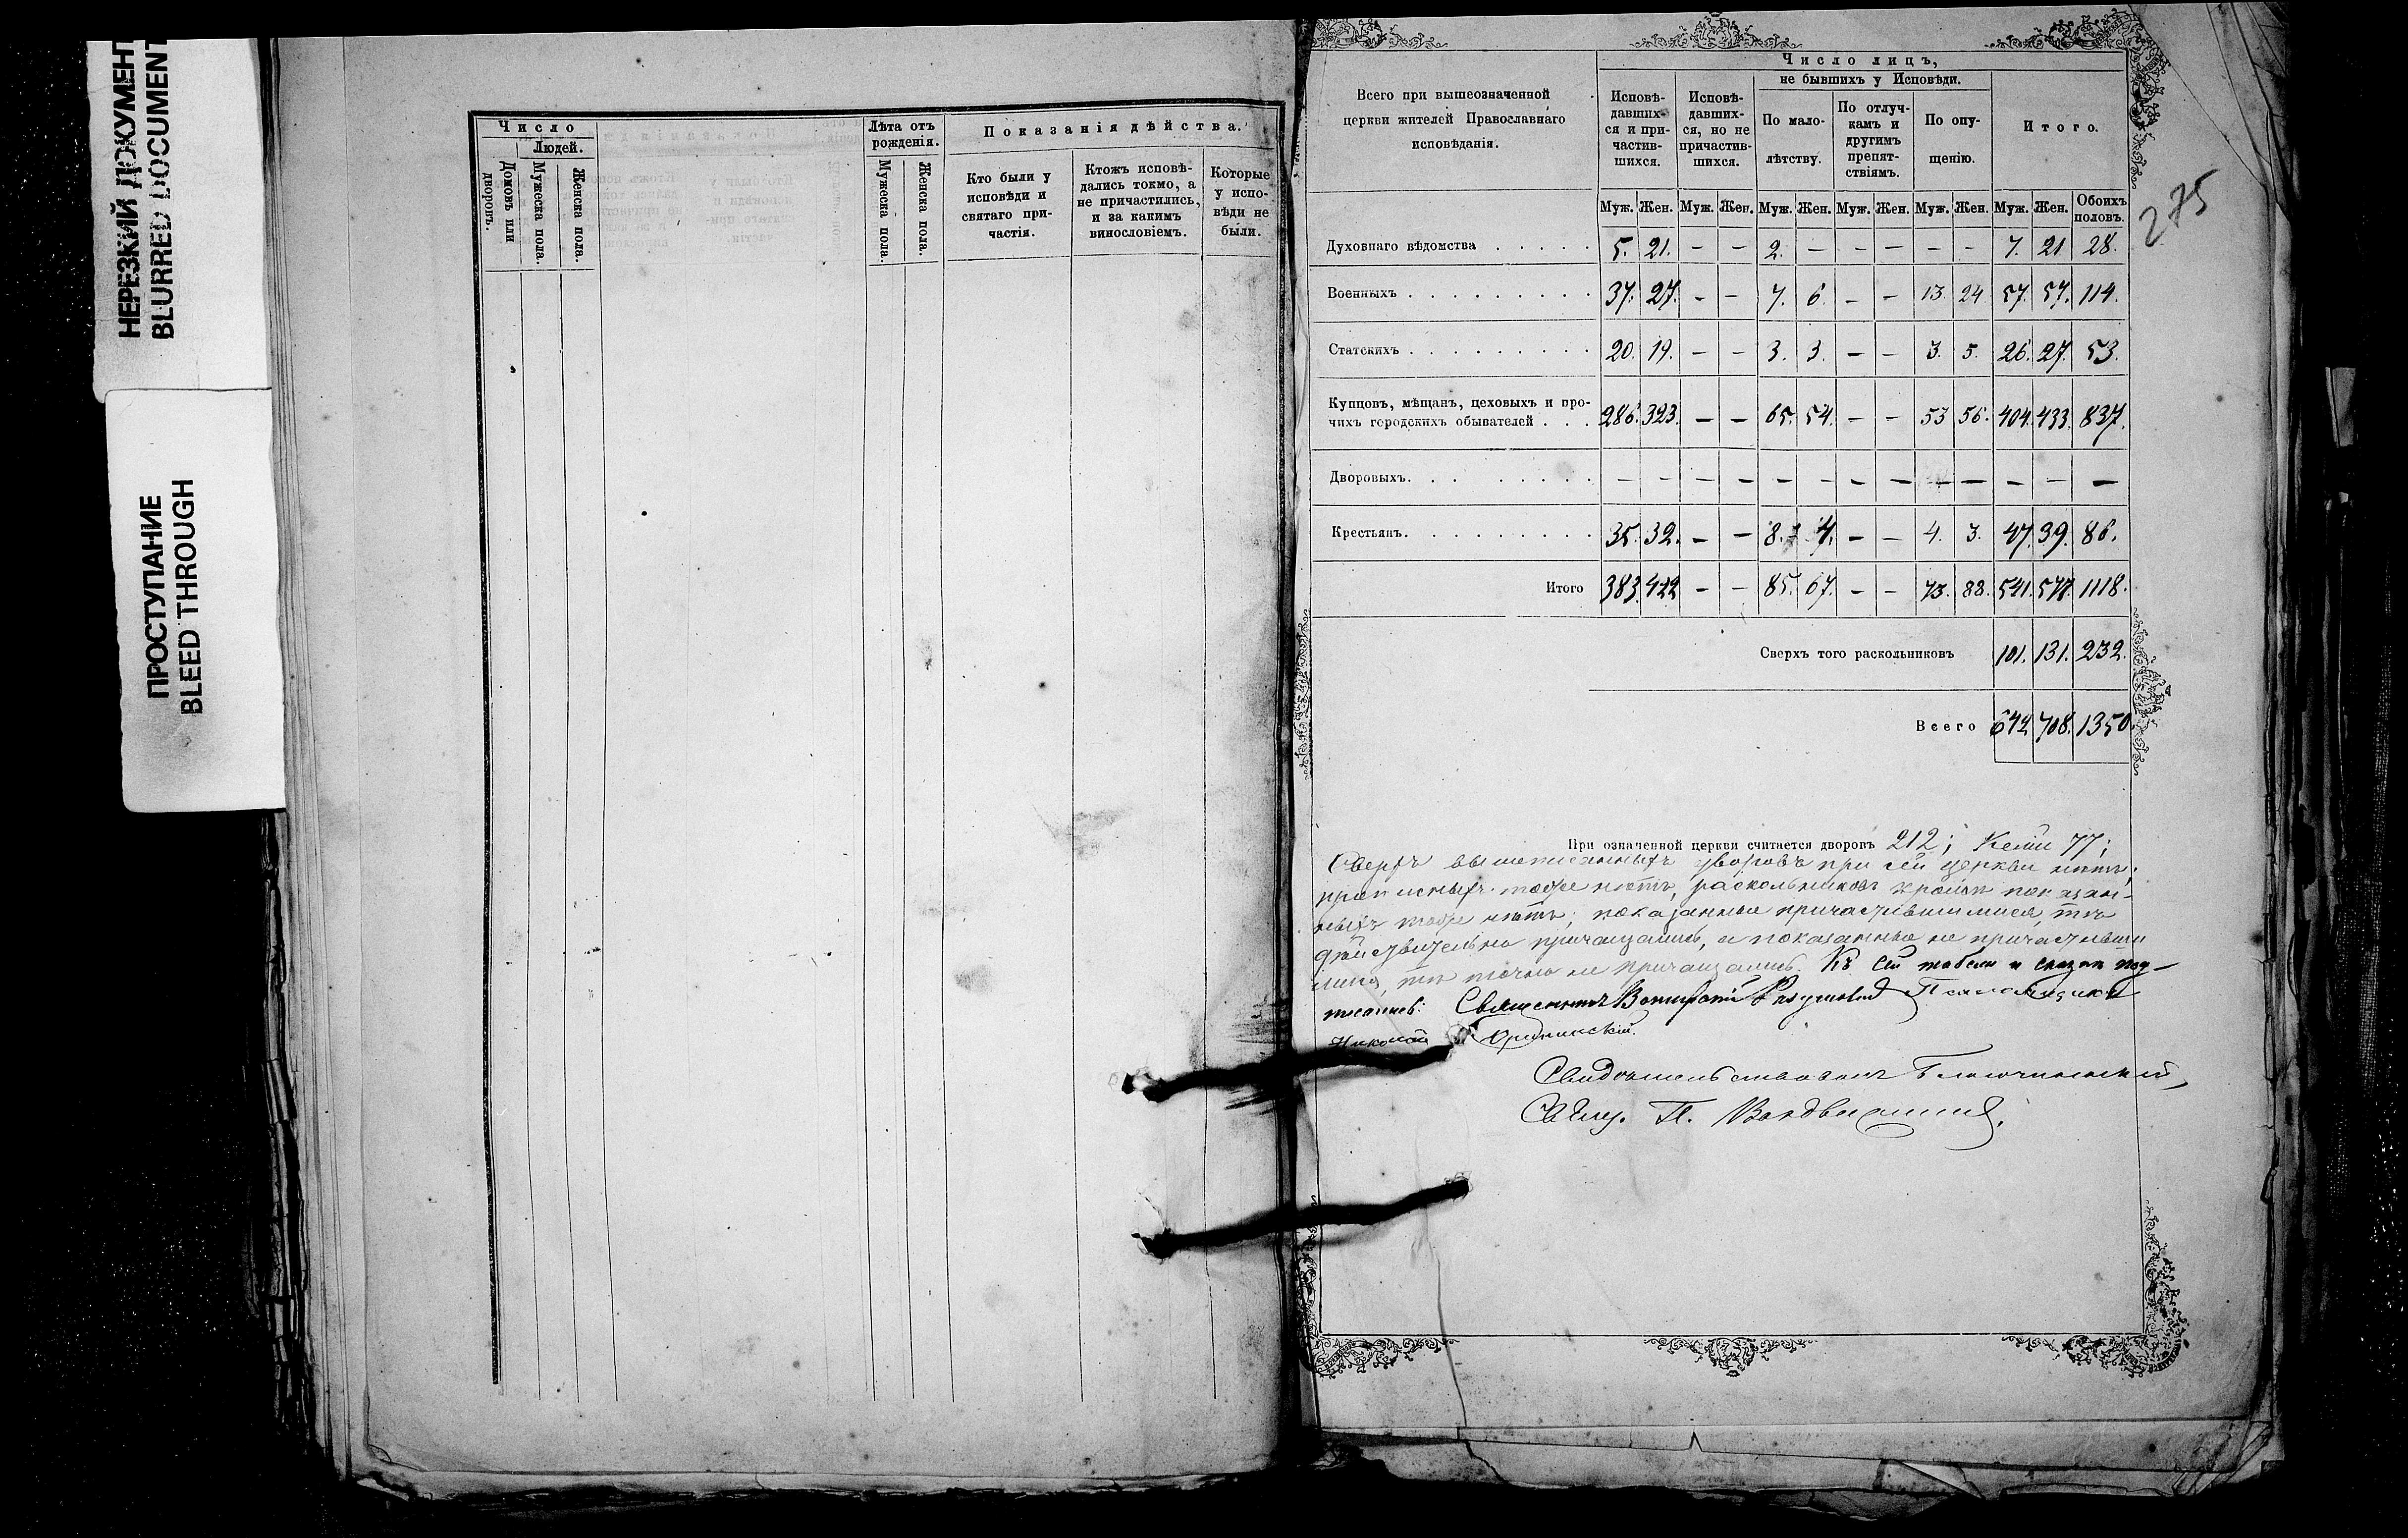 НЕРЕЗКИЙ ДОКУМЕНТ
BLURRED DOCUMENT
ПРОСТУПАНИЕ
BLEED THROUGH
Число
Людей.
Домовъ или дворовъ.
Мужеска пола.
Женска пола.
Лѣта отъ рожденія.
Мужеска пола.
Женска пола.
Показанія дѣйства.
Кто были у исповѣди и святаго причастія.
Ктожъ исповѣдались токмо, а не причастились, и за какимъ винословіемъ.
Которые у исповѣди не были.
275
Всего при вышеозначенной
церкви жителей Православнаго
исповѣданія.
Число лицъ,
не бывшихъ у Исповѣди.
Исповѣ-
давших-
ся и при-
частив-
шихся.
Исповѣ-
давших-
ся, но не
причастив-
шихся.
По мало-
лѣтству.
По отлуч-
камъ и
другимъ
препят-
ствіямъ.
По опу-
щенію.
Итого.
Муж. Жен. Муж. Жен. Муж. Жен. Муж. Жен. Муж. Жен. Муж. Жен. Обоихъ половъ.
Духовнаго вѣдомства . . . . . 5. 21. – – 2. – – – – – 7. 21 28.
Военныхъ . . . . . . . . . 37. 27. – – 7. 6. – – 13. 24 57. 57. 114.
Статскихъ . . . . . . . . . 20. 19. – – 3. 3. – – 3. 5. 26. 27. 53.
Купцовъ, мѣщанъ, цеховыхъ и про-
чихъ городскихъ обывателей . . . 286. 323. – – 65. 54. – – 53 56. 404. 433. 837.
Дворовыхъ. . . . . . . . – – – – – – – – – – – – –
Крестьянъ. . . . . . . . . 35. 32. – – 8. 4. – – 4. 3. 47. 39. 86.
Итого 383. 422 – – 85. 67. – – 73. 88. 541. 577. 1118.
Сверхъ того раскольниковъ 101. 131. 232.
Всего 642 708. 1350.
При означенной церкви считается дворовъ 212; Келій 77;
Сверхъ вышеписанныхъ дворовъ при сей церкви нѣтъ;
прописныхъ тоже нѣтъ, раскольниковъ кромѣ показан-
ныхъ тоже нѣтъ; показанные причастившимися, тѣ
дѣйствительно причащались, а показанные не причастивши
мися, тѣ точно не причащались. Къ сей табели и сказки под-
писались: Священникъ Псаломщикъ
Николай
Свидѣтельствовалъ Благочинный,
Свящ. П. Воздвиженскій.